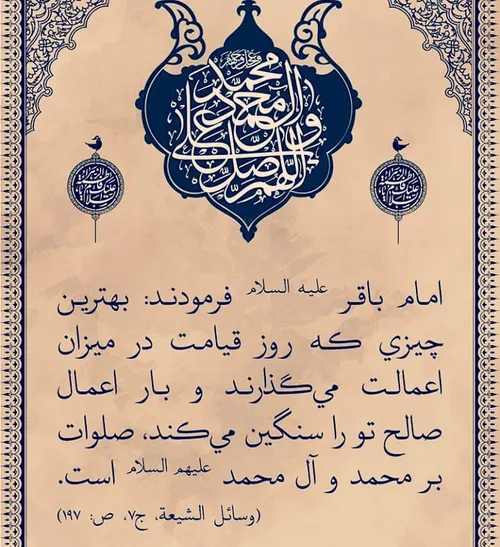 اللهم صل علی محمد وآل محمد وعجل فرجهم
امام باقر علیه السلام فرمودند: بهترین
چیزي که روز قیامت در میزان
اعمالت می‌گذارند و بار اعمال
صالح تو را سنگین می‌کند، صلوات
بر محمد و آل محمد علیهم السلام است.
(وسائل الشیعة، ج۷، ص: ۱۹۷)